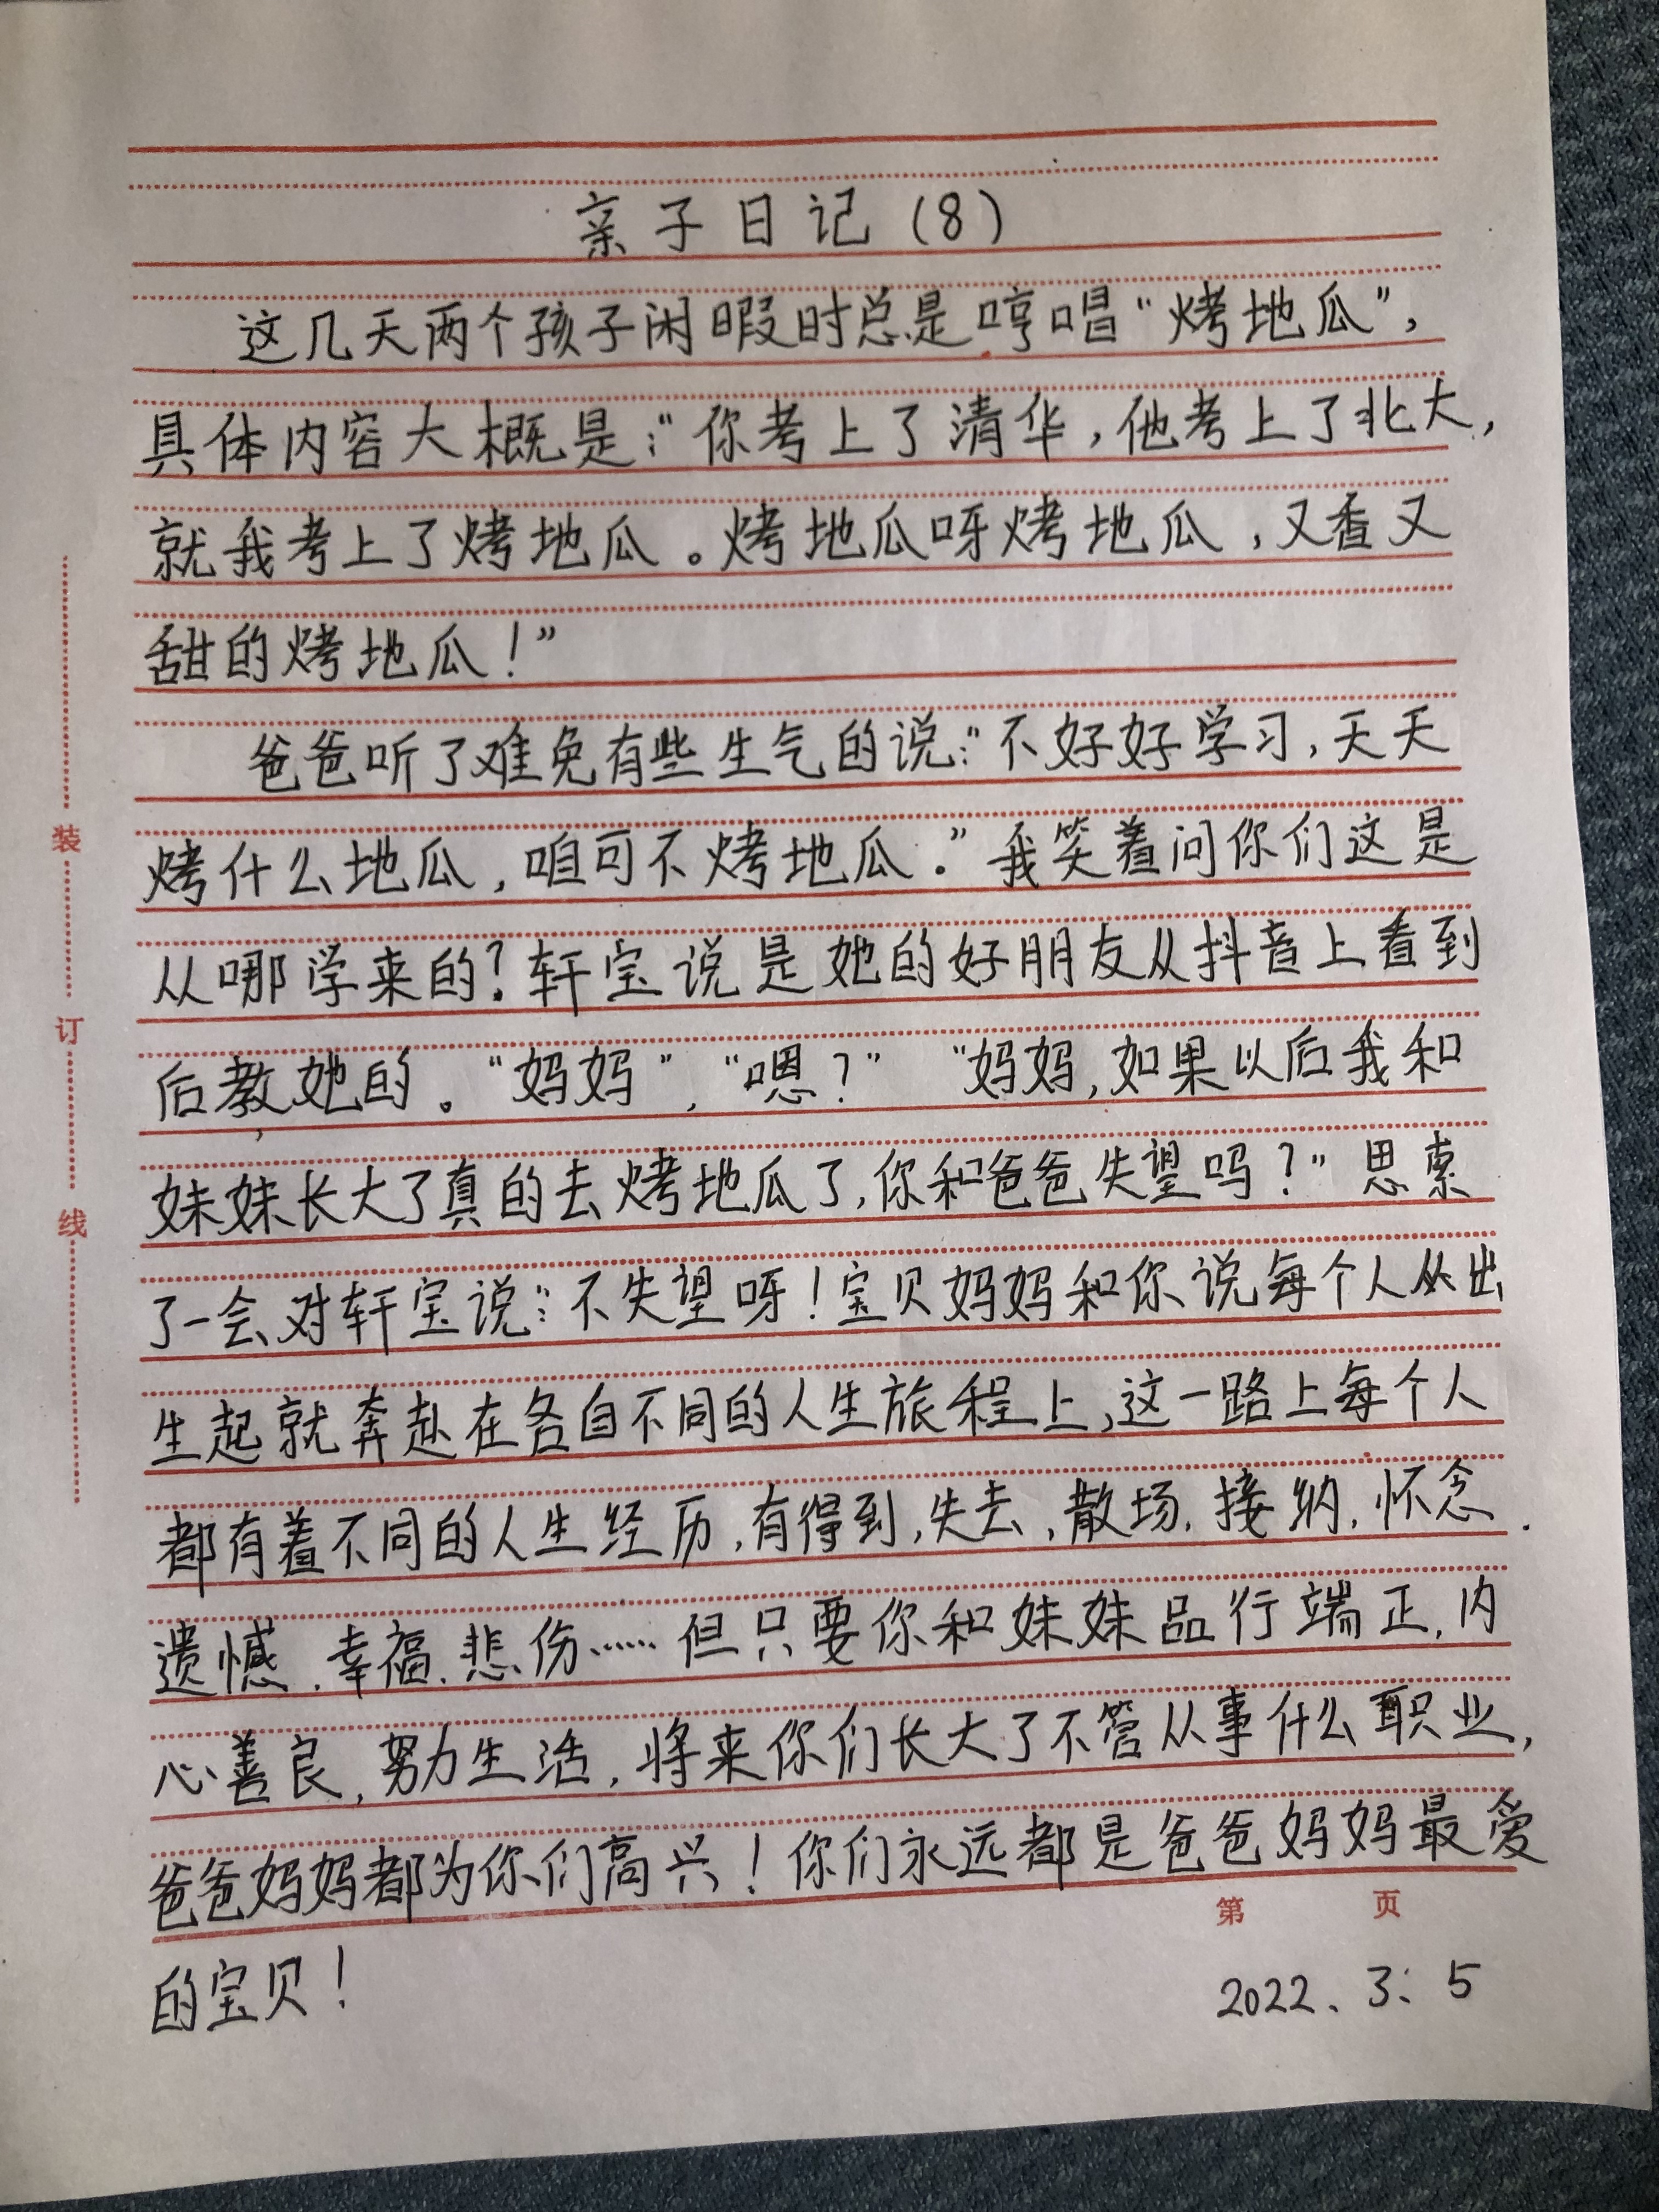 亲子日记(8)
这几天两个孩子闲暇时总是哼唱“烤地瓜”,
具体内容大概是:“你考上了清华,他考上了北大,
就我考上了烤地瓜。烤地瓜呀烤地瓜,又香又
甜的烤地瓜!”
爸爸听了难免有些生气的说:“不好好学习,天天
烤什么地瓜,咱可不烤地瓜.”我笑着问你们这是
从哪学来的?轩宝说是她的好朋友从抖音上看到
后教她的。“妈妈”,“嗯?”“妈妈,如果以后我和
妹妹长大了真的去烤地瓜了,你和爸爸失望吗?”思索
了一会对轩宝说:“不失望呀!宝贝妈妈和你说每个人从出
生起就奔赴在各自不同的人生旅程上,这一路上每个人
都有着不同的人生经历,有得到,失去,散场,接纳,怀念.
遗憾.幸福.悲伤……但只要你和妹妹品行端正,内
心善良,努力生活,将来你们长大了不管从事什么职业,
爸爸妈妈都为你们高兴!你们永远都是爸爸妈妈最爱
的宝贝!
第 页
2022、3、5
装
订
线